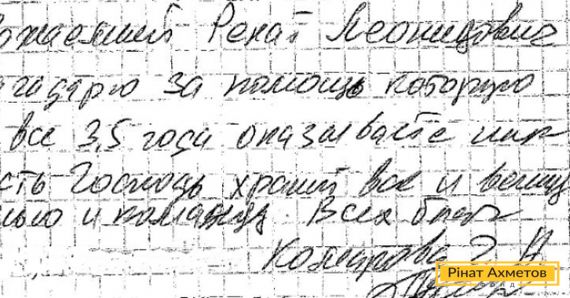 важаемый Ренат Леонидович
агодарю за помощь которую
все 3,5 года оказываете нам
сть Господь хранит вас и вашу
мью и команду. Всех благ
Комарова Э. Н
Рінат Ахметов
ФОНД